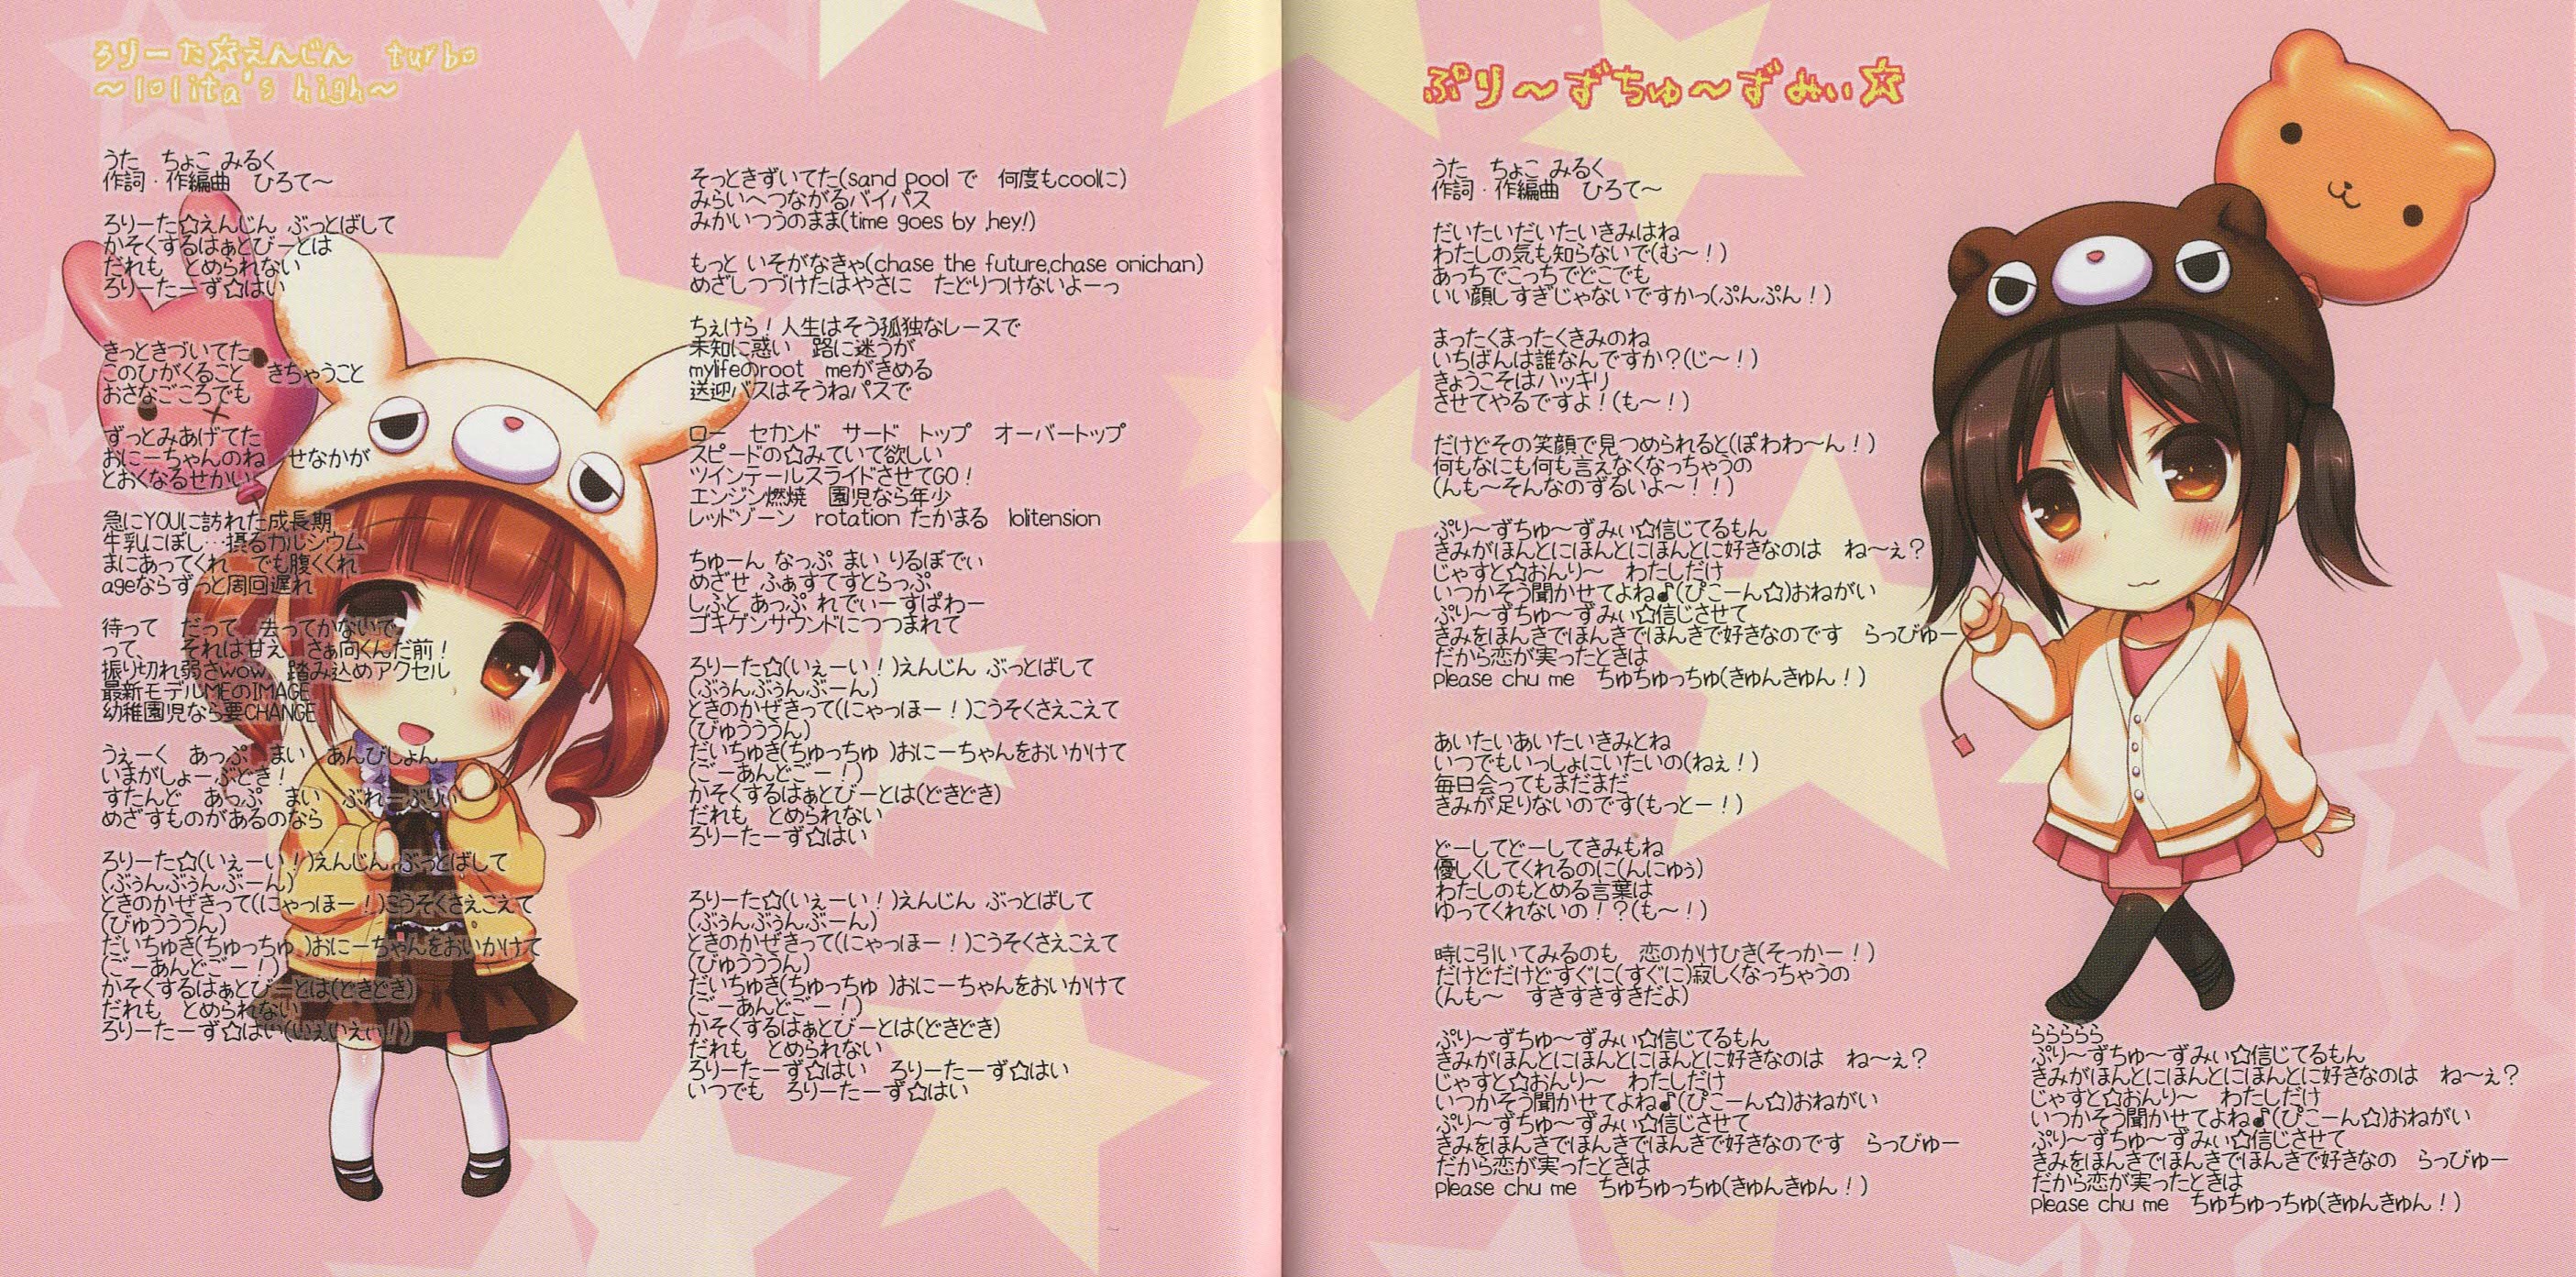 ろりーた☆えんじん　turbo
～lolita's high～
うた　ちょこ みるく
作詞・作編曲　ひろて～
ろりーた☆えんじん ぶっとばして
かそくするはぁとびーとは
だれも　とめられない
ろりーたーず☆はい
きっときづいてた
このひがくること　きちゃうこと
おさなごころでも
ずっとみあげてた
おにーちゃんのね　せなかが
とおくなるせかい
急にYOUに訪れた成長期
牛乳にぼし…摂るカルシウム
まにあってくれ　でも腹くくれ
ageならずっと周回遅れ
待って　だって　去ってかないで
って、　それは甘え　さぁ向くんだ前！
振り切れ弱さwow　踏み込めアクセル
最新モデルMEのIMAGE
幼稚園児なら要CHANGE
うぇーく　あっぷ　まい　あんびしょん
いまがしょーぶどき！
すたんど　あっぷ　まい　ぶれーぶりぃ
めざすものがあるのなら
ろりーた☆(いぇーい！)えんじん ぶっとばして
(ぶぅんぶぅんぶーん)
ときのかぜきって(にゃっほー！)こうそくさえこえて
(びゅうううん)
だいちゅき(ちゅっちゅ )おにーちゃんをおいかけて
(ごーあんどごー！)
かそくするはぁとびーとは(どきどき)
だれも　とめられない
ろりーたーず☆はい(いぇいえい！)
そっときずいてた(sand pool で　何度もcoolに)
みらいへつながるバイパス
みかいつうのまま(time goes by ,hey!)
もっと いそがなきゃ(chase the future,chase onichan)
めざしつづけたはやさに　たどりつけないよーっ
ちぇけら！人生はそう孤独なレースで
未知に惑い　路に迷うが
mylifeのroot　meがきめる
送迎バスはそうねパスで
ロー　セカンド　サード　トップ　オーバートップ
スピードの☆みていて欲しい
ツインテールスライドさせてGO！
エンジン燃焼　園児なら年少
レッドゾーン　rotation たかまる　lolitension
ちゅーん なっぷ まい りるぼでぃ
めざせ ふぁすてすとらっぷ
しふと あっぷ れでぃーすぱわー
ゴキゲンサウンドにつつまれて
ろりーた☆(いぇーい！)えんじん ぶっとばして
(ぶぅんぶぅんぶーん)
ときのかぜきって(にゃっほー！)こうそくさえこえて
(びゅうううん)
だいちゅき(ちゅっちゅ )おにーちゃんをおいかけて
(ごーあんどごー！)
かそくするはぁとびーとは(どきどき)
だれも　とめられない
ろりーたーず☆はい
ろりーた☆(いぇーい！)えんじん ぶっとばして
(ぶぅんぶぅんぶーん)
ときのかぜきって(にゃっほー！)こうそくさえこえて
(びゅうううん)
だいちゅき(ちゅっちゅ )おにーちゃんをおいかけて
(ごーあんどごー！)
かそくするはぁとびーとは(どきどき)
だれも　とめられない
ろりーたーず☆はい　ろりーたーず☆はい
いつでも　ろりーたーず☆はい
ぷり～ずちゅ～ずみぃ☆
うた　ちょこ みるく
作詞・作編曲　ひろて～
だいたいだいたいきみはね
わたしの気も知らないで(む～！)
あっちでこっちでどこでも
いい顔しすぎじゃないですかっ(ぷんぷん！)
まったくまったくきみのね
いちばんは誰なんですか？(じ～！)
きょうこそはハッキリ
させてやるですよ！(も～！)
だけどその笑顔で見つめられると(ぽわわ～ん！)
何もなにも何も言えなくなっちゃうの
(んも～そんなのずるいよ～！！)
ぷり～ずちゅ～ずみぃ☆信じてるもん
きみがほんとにほんとにほんとに好きなのは　ね～ぇ？
じゃすと☆おんり～　わたしだけ
いつかそう聞かせてよね♪(ぴこーん☆)おねがい
ぷり～ずちゅ～ずみぃ☆信じさせて
きみをほんきでほんきでほんきで好きなのです　らっびゅー
だから恋が実ったときは
please chu me　ちゅちゅっちゅ(きゅんきゅん！)
あいたいあいたいきみとね
いつでもいっしょにいたいの(ねぇ！)
毎日会ってもまだまだ
きみが足りないのです(もっとー！)
どーしてどーしてきみもね
優しくしてくれるのに(んにゅぅ)
わたしのもとめる言葉は
ゆってくれないの！？(も～！)
時に引いてみるのも　恋のかけひき(そっかー！)
だけどだけどすぐに(すぐに)寂しくなっちゃうの
(んも～　すきすきすきだよ)
ぷり～ずちゅ～ずみぃ☆信じてるもん
きみがほんとにほんとにほんとに好きなのは　ね～ぇ？
じゃすと☆おんり～　わたしだけ
いつかそう聞かせてよね♪(ぴこーん☆)おねがい
ぷり～ずちゅ～ずみぃ☆信じさせて
きみをほんきでほんきでほんきで好きなのです　らっびゅー
だから恋が実ったときは
please chu me　ちゅちゅっちゅ(きゅんきゅん！)
ららららら
ぷり～ずちゅ～ずみぃ☆信じてるもん
きみがほんとにほんとにほんとに好きなのは　ね～ぇ？
じゃすと☆おんり～　わたしだけ
いつかそう聞かせてよね♪(ぴこーん☆)おねがい
ぷり～ずちゅ～ずみぃ☆信じさせて
きみをほんきでほんきでほんきで好きなの　らっびゅー
だから恋が実ったときは
please chu me　ちゅちゅっちゅ(きゅんきゅん！)